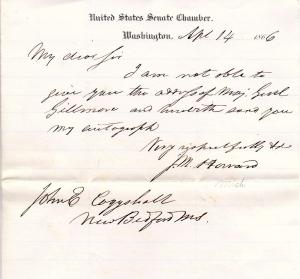 United States Senate Chamber.
Washington, Apl 14 1866
My dear Sir
I am not able to
give you the address of Maj. Genl
Gillmore and herewith send you
my autograph
Very respectfully &c
J.M. Howard
Mich
John E Coggshall
New Bedford Ms.